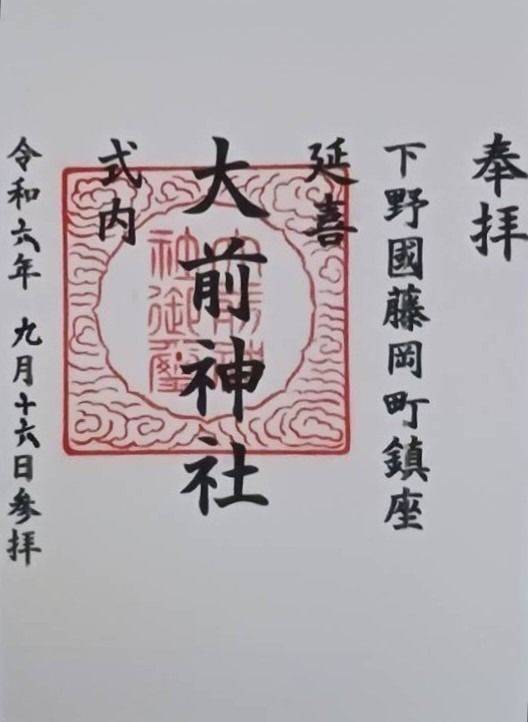 奉拝
下野國藤岡町鎮座
延喜
大前神社
式内
令和六年 九月十六日参拝